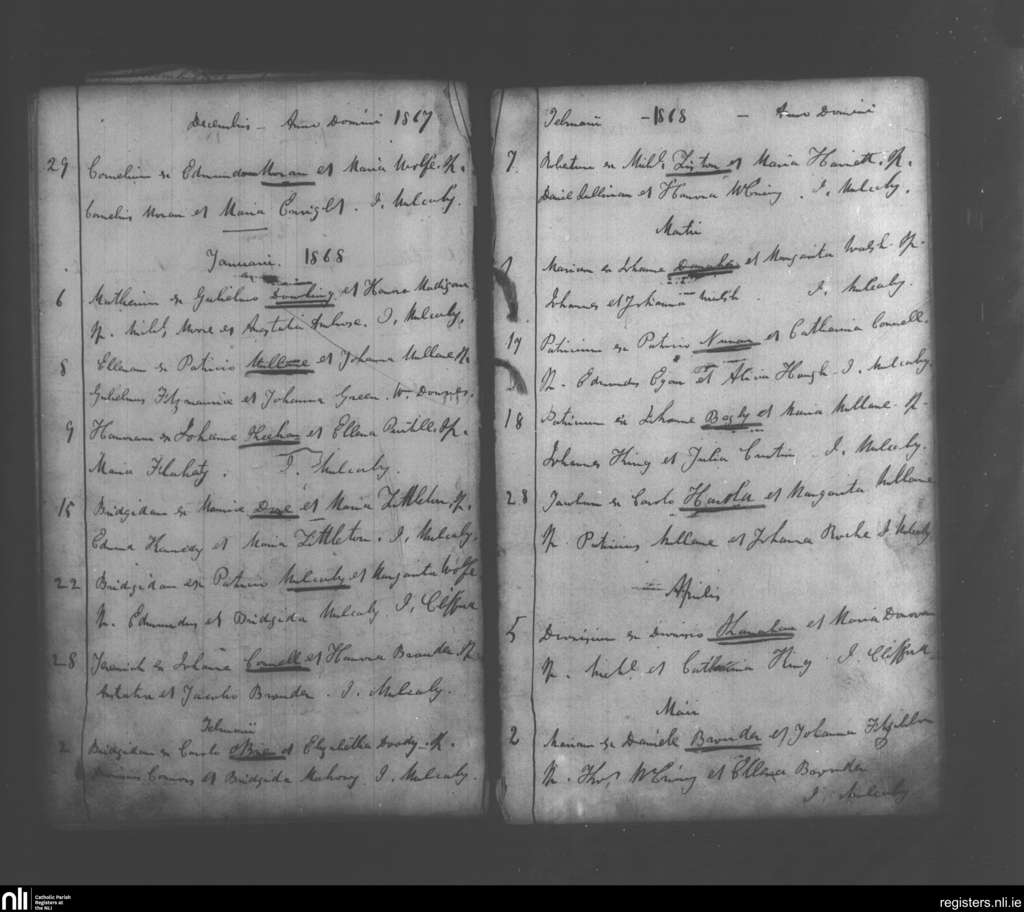 Decembris - Anno Domini 1867
29 Cornelium ex Edmundo Moran et Maria Wolfe. Sp.
Cornelius Moran et Maria Enright. J. Mulcahy.
Januarii. 1868
6 Matheum ex Gulielmo Dowling et Hanora Madigan
Sp. Michl. et Anastatia Ambrose. J. Mulcahy.
8 Ellenam ex Patricio Mullane et Johanna Mullane Sp.
Gulielmus Fitzmaurice et Johanna Green. W.
9 Honoram ex Johanne et Ellena Sp.
Maria Flahaty. J. Mulcahy.
15 Bridgidam ex et Maria Littleton. Sp.
Edmund Kennedy et Maria Littleton. J. Mulcahy.
22 Bridgidam ex Patricio Mulcahy et Margarita Wolfe
Sp. Edmundus et Bridgida Mulcahy. J. Clifford
28 Jeremiah ex Johanne Connell et Hanora Brouder. Sp.
et Jacobo Brouder. J. Mulcahy.
Februarii
2 Bridgidam ex Carolo et Elizabetha Doody. Sp.
Connors et Bridgida Mahony. J. Mulcahy.
Februarii - 1868 - Anno Domini
7. Robertum ex Michl. et Maria Harnett. Sp.
Daniel Sullivan et Hanora J. Mulcahy.
Martii
Mariam ex Johanne et Margarita Walsh. Sp.
Johannes et Johanna Walsh J. Mulcahy.
17 Patricium ex Patricio Nunan et Catharina Connell.
Sp. Edmundus Egan et Alicia Hough. J. Mulcahy.
18 Patricium ex Johanne Begly et Maria Mullane. Sp.
Johannes King et Julia Curtin. J. Mulcahy.
28 ex Carolo et Margarita Mullane
Sp. Patricius Mullane et Johanna Roche J. Mulcahy
Aprilis
5 Dionysium ex Dionysio et Maria
Sp. Michl. et Catharina King. J. Clifford
Maii
2 Mariam ex Daniele Brouder et Johanna Fitzgibbon
Sp. Thos. et Ellena Brouder
J. Mulcahy
nli
Catholic Parish
Registers at
the NLI
registers.nli.ie